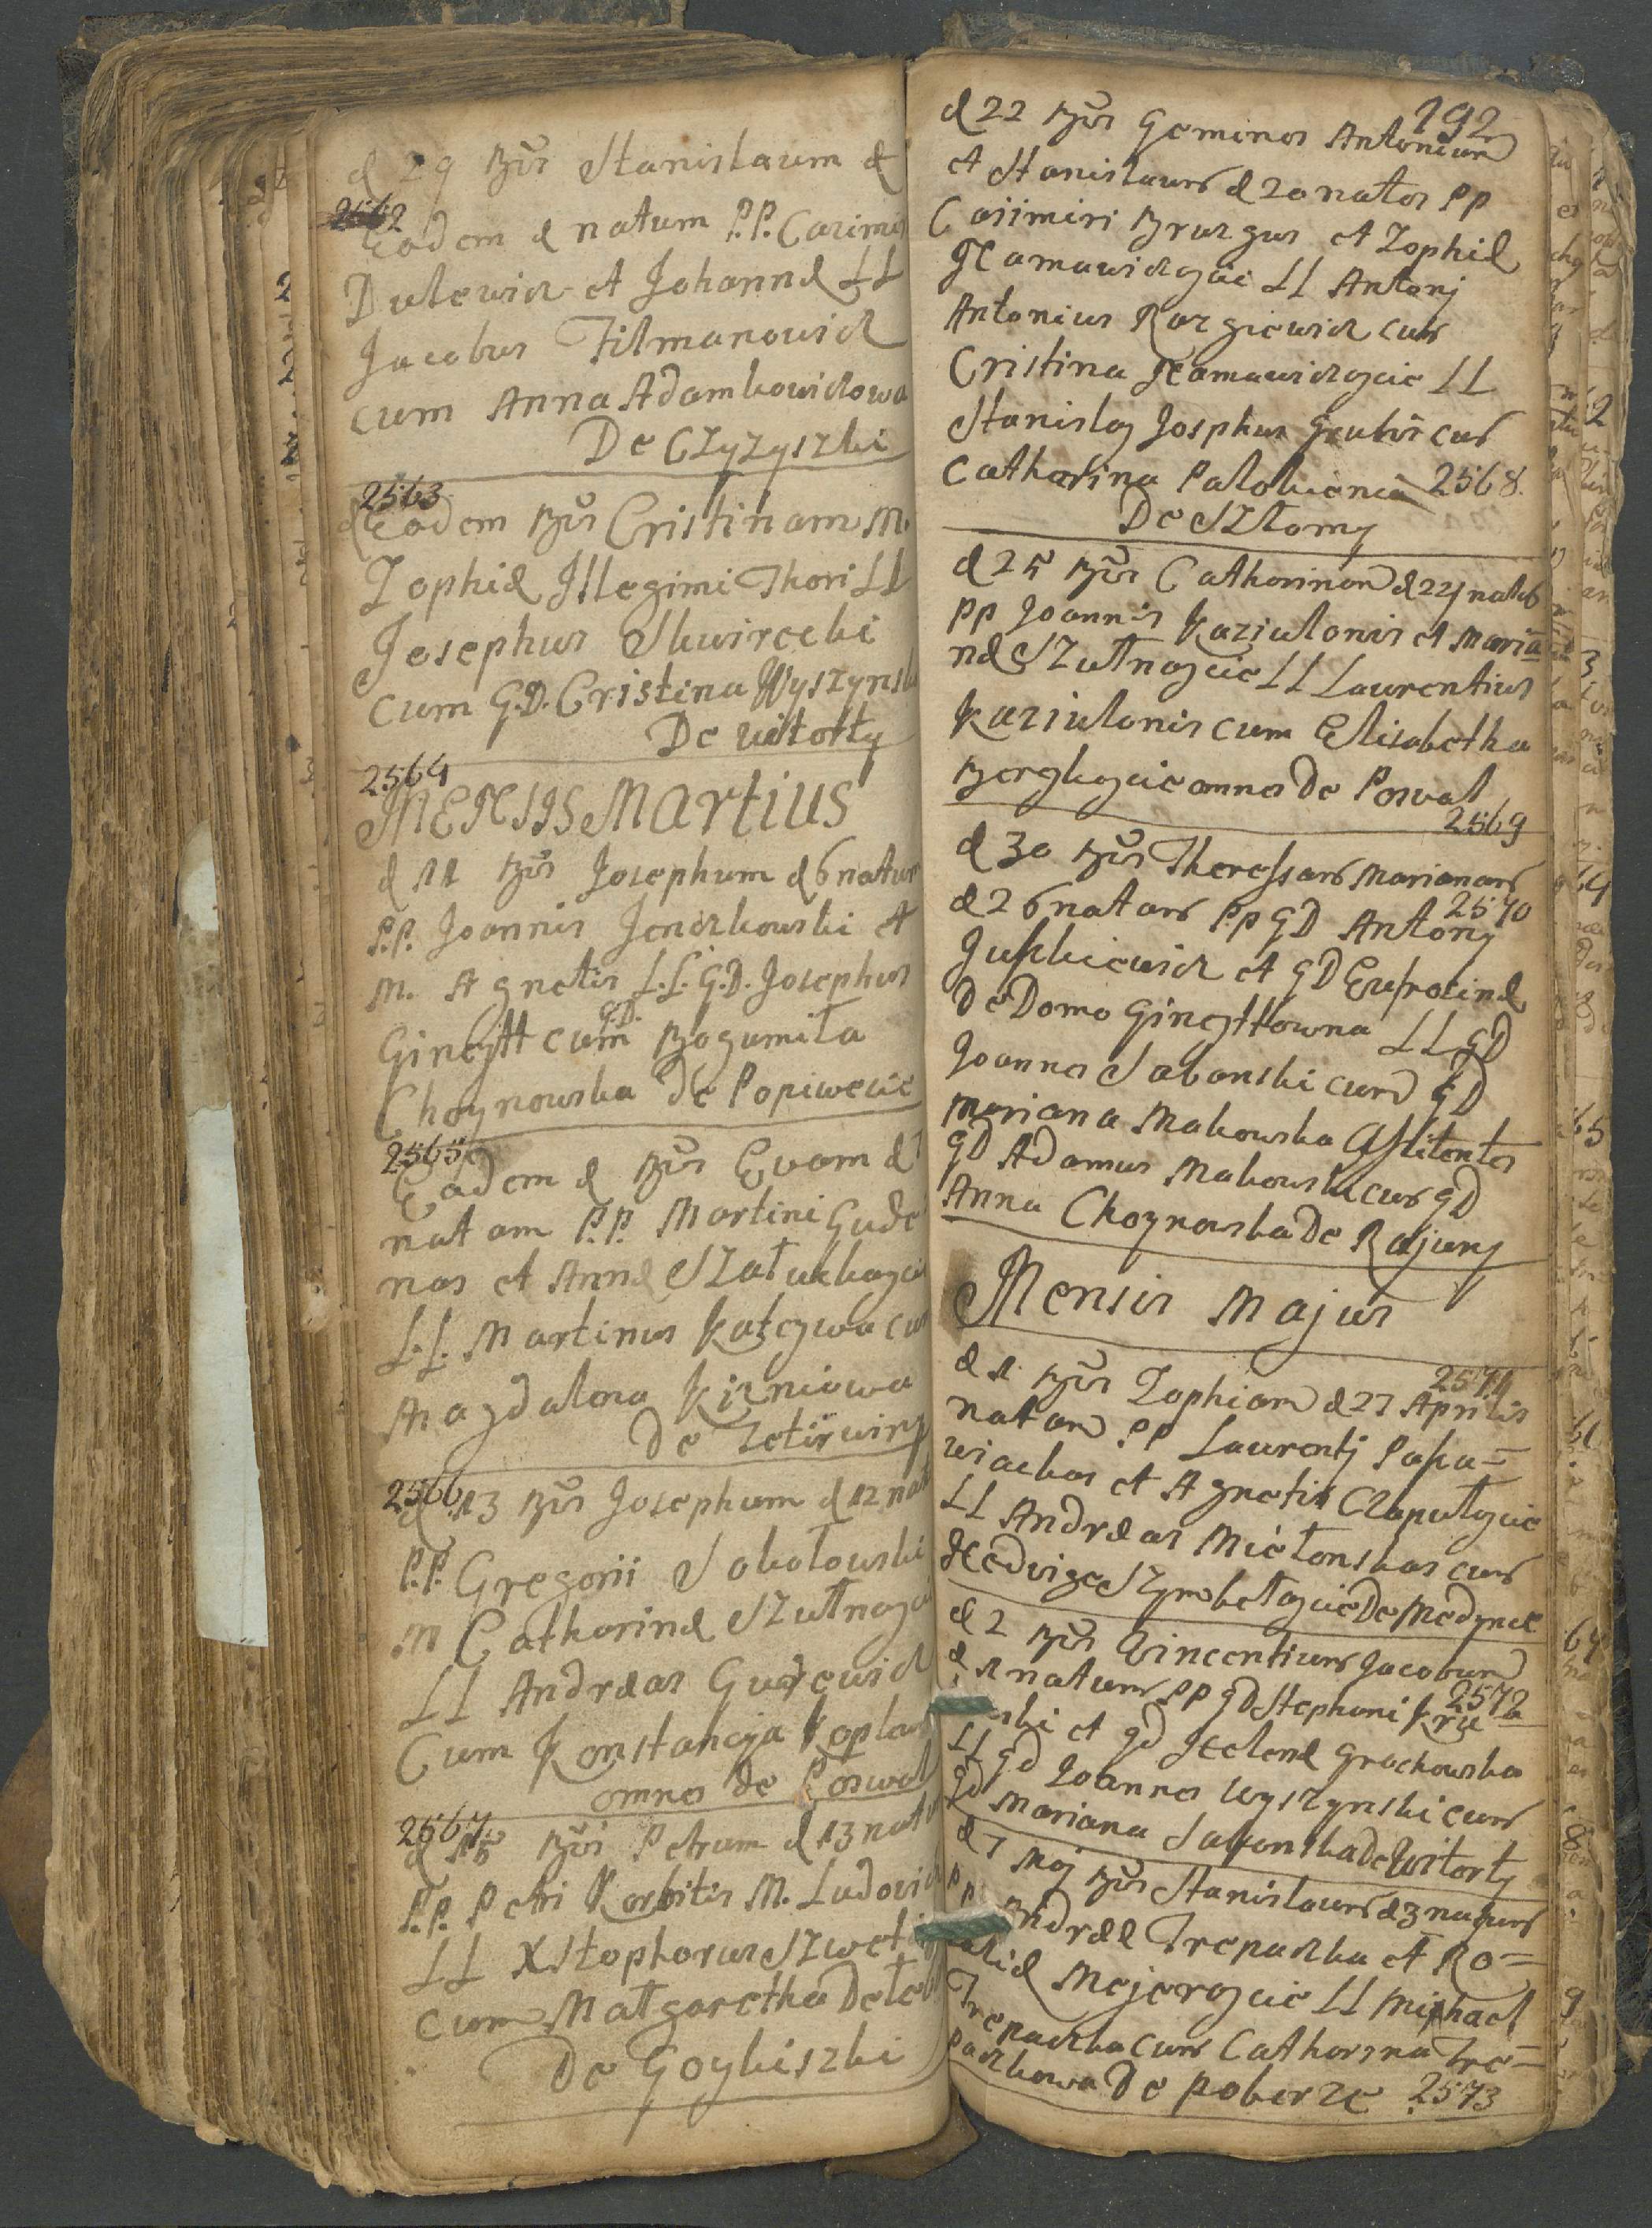 d 29 Bũs Stanislaum d
2562
Eadem d natum P.P. Cazimiri
Dulewicz et Johannæ LL
Jacobus Filmanowicz
cum Anna Adamkowiczowa
De Czyzyszki
2563
d Eadem Bũs Cristinam M.
Zophiæ Illegimi Thori LL
Josephus Skwirecki
cum G.D. Cristina Wyszynska
De Witorty
2564
MENSIS Martius
d 11 Bũs Josephum d 6 natum
P.P. Joannis Jenczkowski et
M. Agnetis L.L. G.D. Josephus
G.D.
Gineytt cum Bogumiła
Choynowska De Popiwecie
2565
Eadem d Bũs Evam d 7
natam P.P. Martini Gude
nas et Annæ Szałukkayci
L.L. Martinus Kałeywa cum
Magdalena Kizniowa
De Zetirwiny
2566
d 13 Bũs Josephum d 12 nat
P.P. Gregorii Sokołowski
M Catharinæ Szułnayci
LL Andræas Gurewicz
Cum Konstancja Koplew
omnes de Poswol
2567
d 15 Bũs Petrum d 13 natu
P.P. Petri Korbitis M. Ludovic
LL Xstophorus Szweti
cum Małgaretha Deteb
De Goykiszki
192
d 22 Bũs Geminos Antonium
et Stanislaum d 20 natos PP
Casimiri Bruzgus et Zophiæ
Namawiczajcie LL Antonj
Antonius Razgiewicz cum
Cristina Namawiczajcie LL
Stanislaj Josphus Grubis cum
Catharina Palokiencia 2568.
De Szłamy
d 25 Bũs Catharinam d 24 natam
PP Joannis Kaziulonis et Maria
næ Szułnajcie LL Laurentius
Kaziulonis cum Elisabetha
Bergkajcie omnes De Poswol
2569
d 30 Bũs Theressam Marianam
2570
d 26 natam PP GD Antonj
Juszkiewicz et GD Eufrosinæ
De Domo Gineyttowna LL GD
Joannes Sabanski cum GD
Mariana Makowska Assistentes
GD Adamus Makowski cum GD
Anna Choynowska De Rajuny
Mensis Majus
2571
d 1 Bũs Zophiam d 27 Aprilis
natam PP Laurentj Papu=
wiackas et Agnetis Czapułajcie
LL Andræas Mictonskas cum
Hedvige Szyrobetajcie De Medynce
d 2 Bũs Vincentium Jacobum
2572
d 1 natum PP GD Stephani Kru
ski et GD Helenæ Grochowska
LL GD Joannes Wyszynski cum
GD Mariana Sabonska de Witorty
d 7 Maj Bũs Stanislaum d 3 natum
PP Andræe Trepaczka et Ro=
zaliæ Mejerajcie LL Miphael
Trepaczka cum Catharina Tre=
paczkowa De Poberze 2573